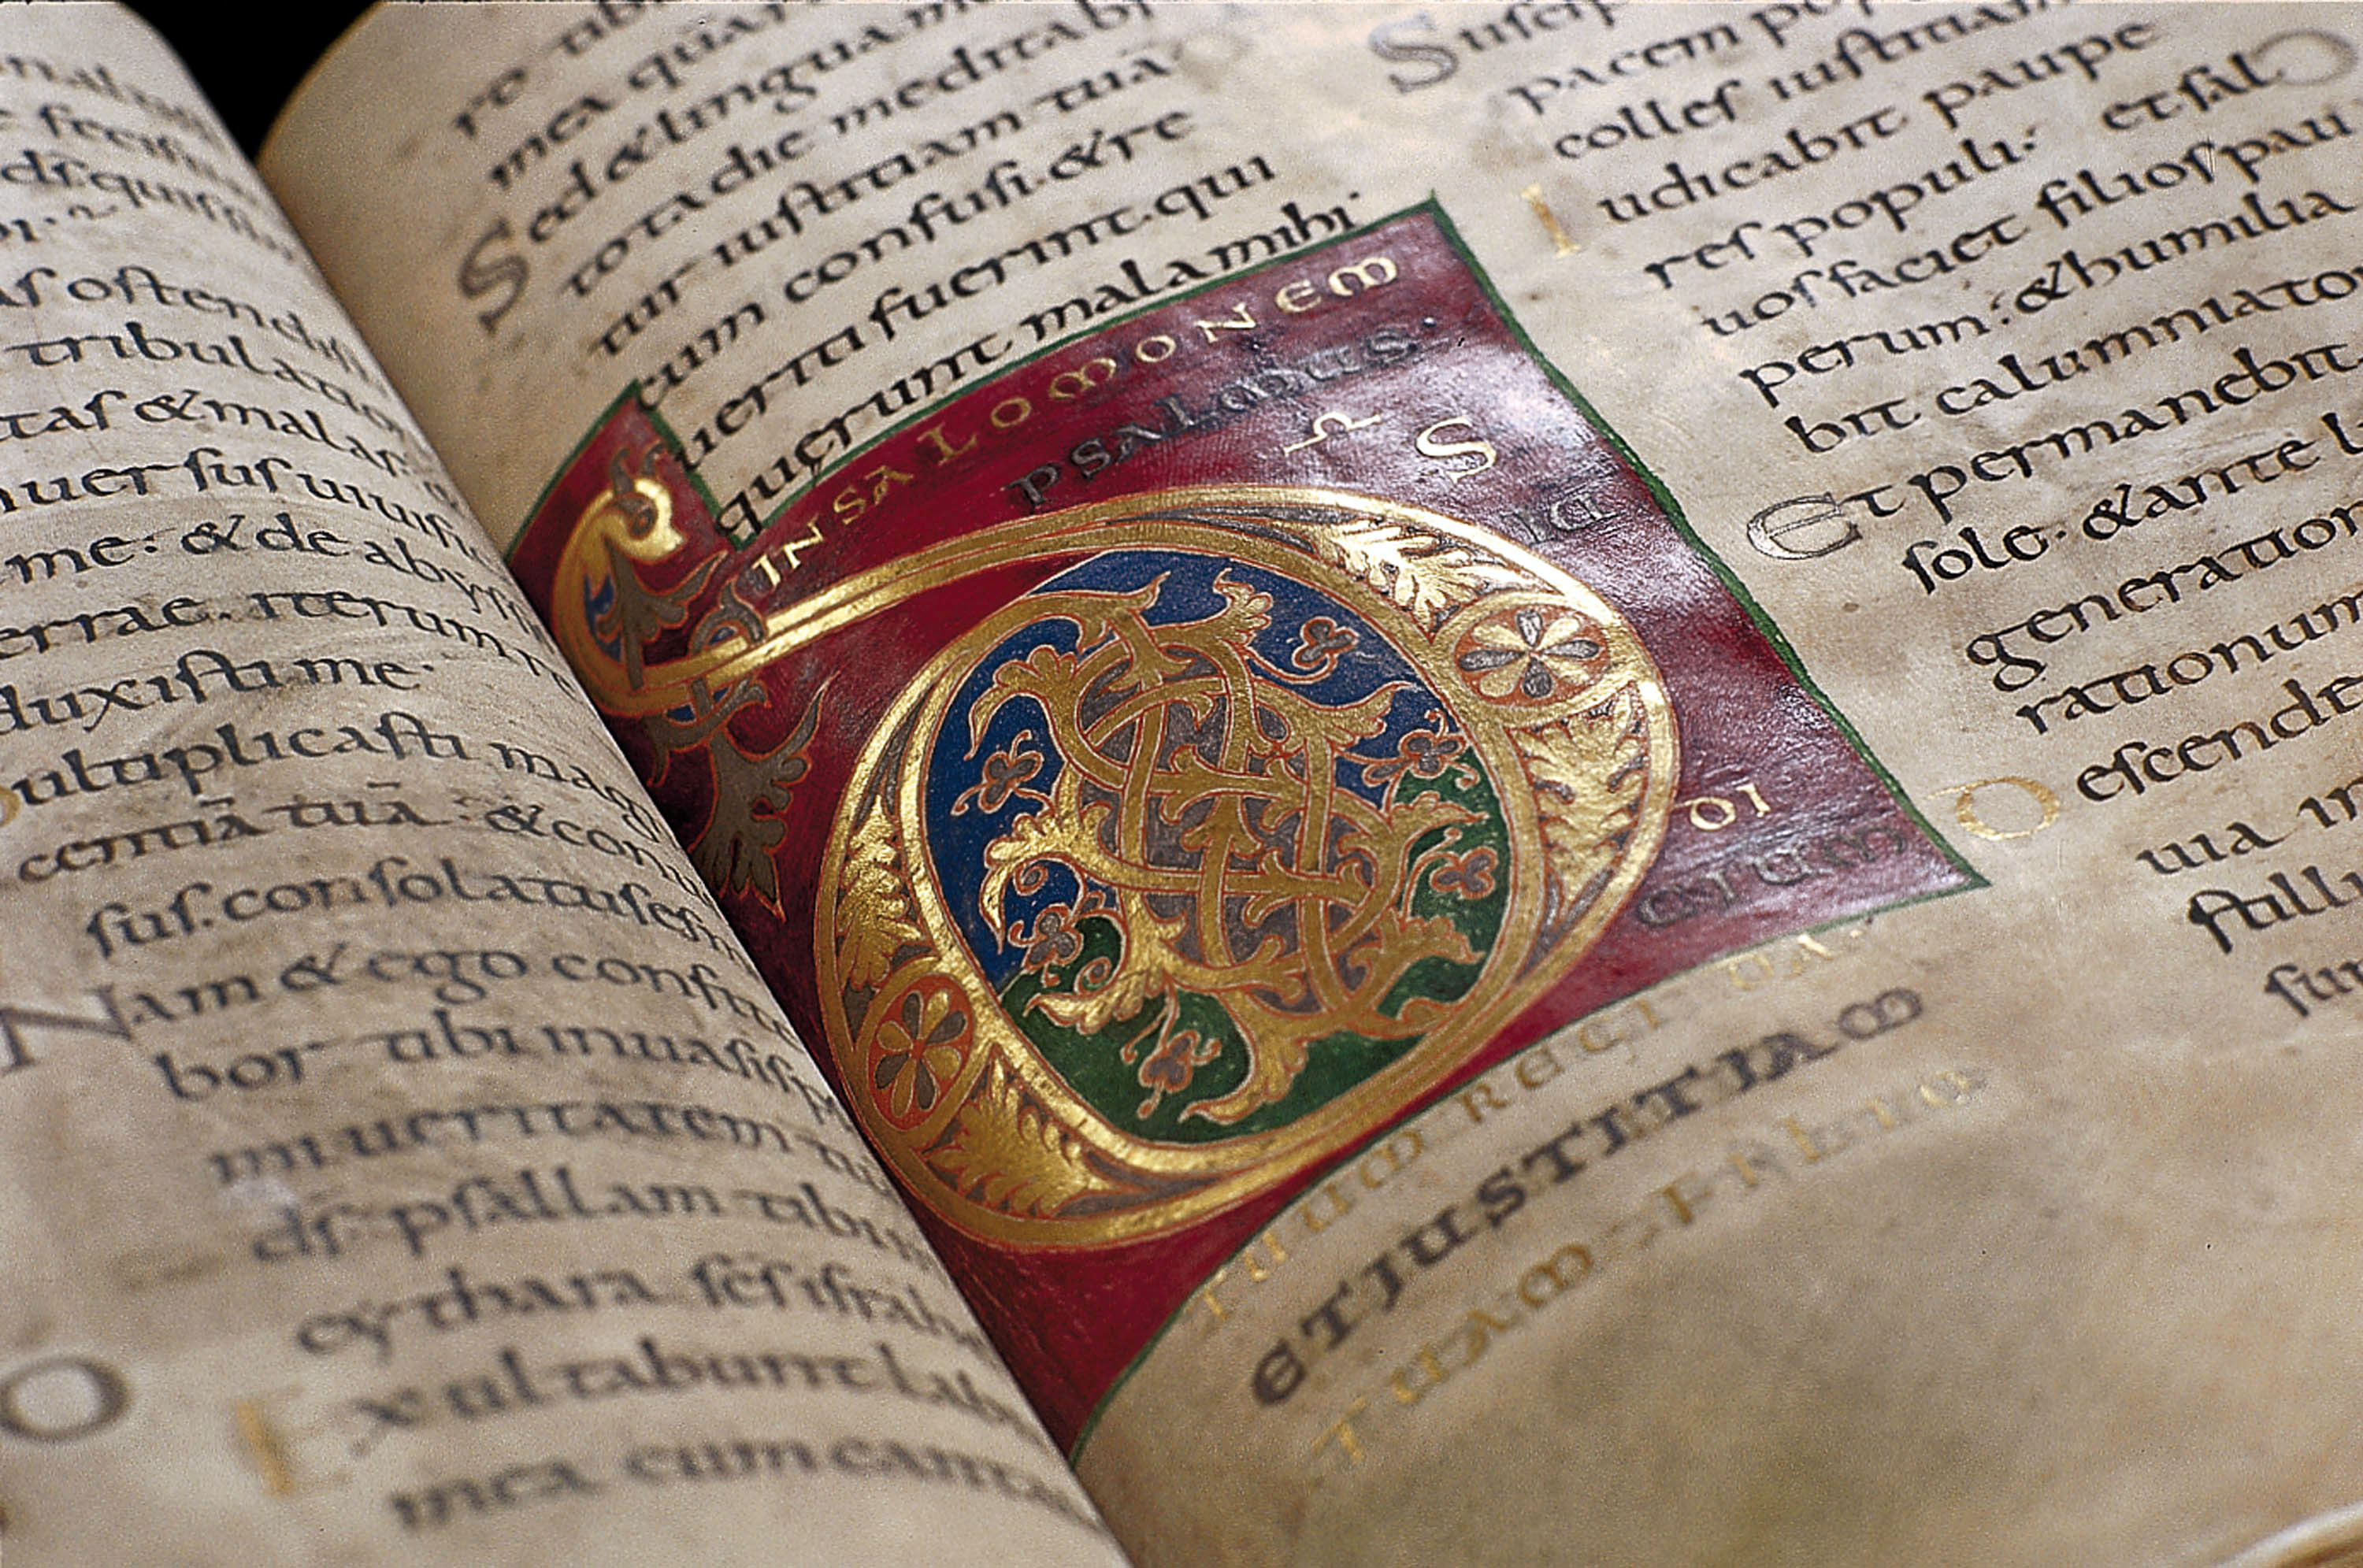 ostendis
tribulatio
tas & malas
me: & de abys
errae. iterum re
duxisti me·
ultiplicasti mag
centiā tuā: & con
sus. consolatuses
Nam & ego confite
bor tibi inuasis p
mi ueritatem tu
ds: psallam tibi
cythara. scs israhe
Exultabunt lab
mea cum canta
re tib
mea qua
Sed & lingua me
tota die meditabi
tur iustitiam tuā
cum confusi. & re
uerti fuerint. qui
querunt mala mihi·
IN SALOMONEM
PSALMUS·
DS
IU
DI
CIUM
TUUM REGI DA·
ET IUSTITIAM
TUAM FILIO
Suscip
pacem po
colles iustitiam
Iudicabit paupe
res populi: et sal
uos faciet filios pau
perum: & humilia
bit calumniato
Et permanebit
sole. & ante l
generation
rationum
Descende
uia in
stilli